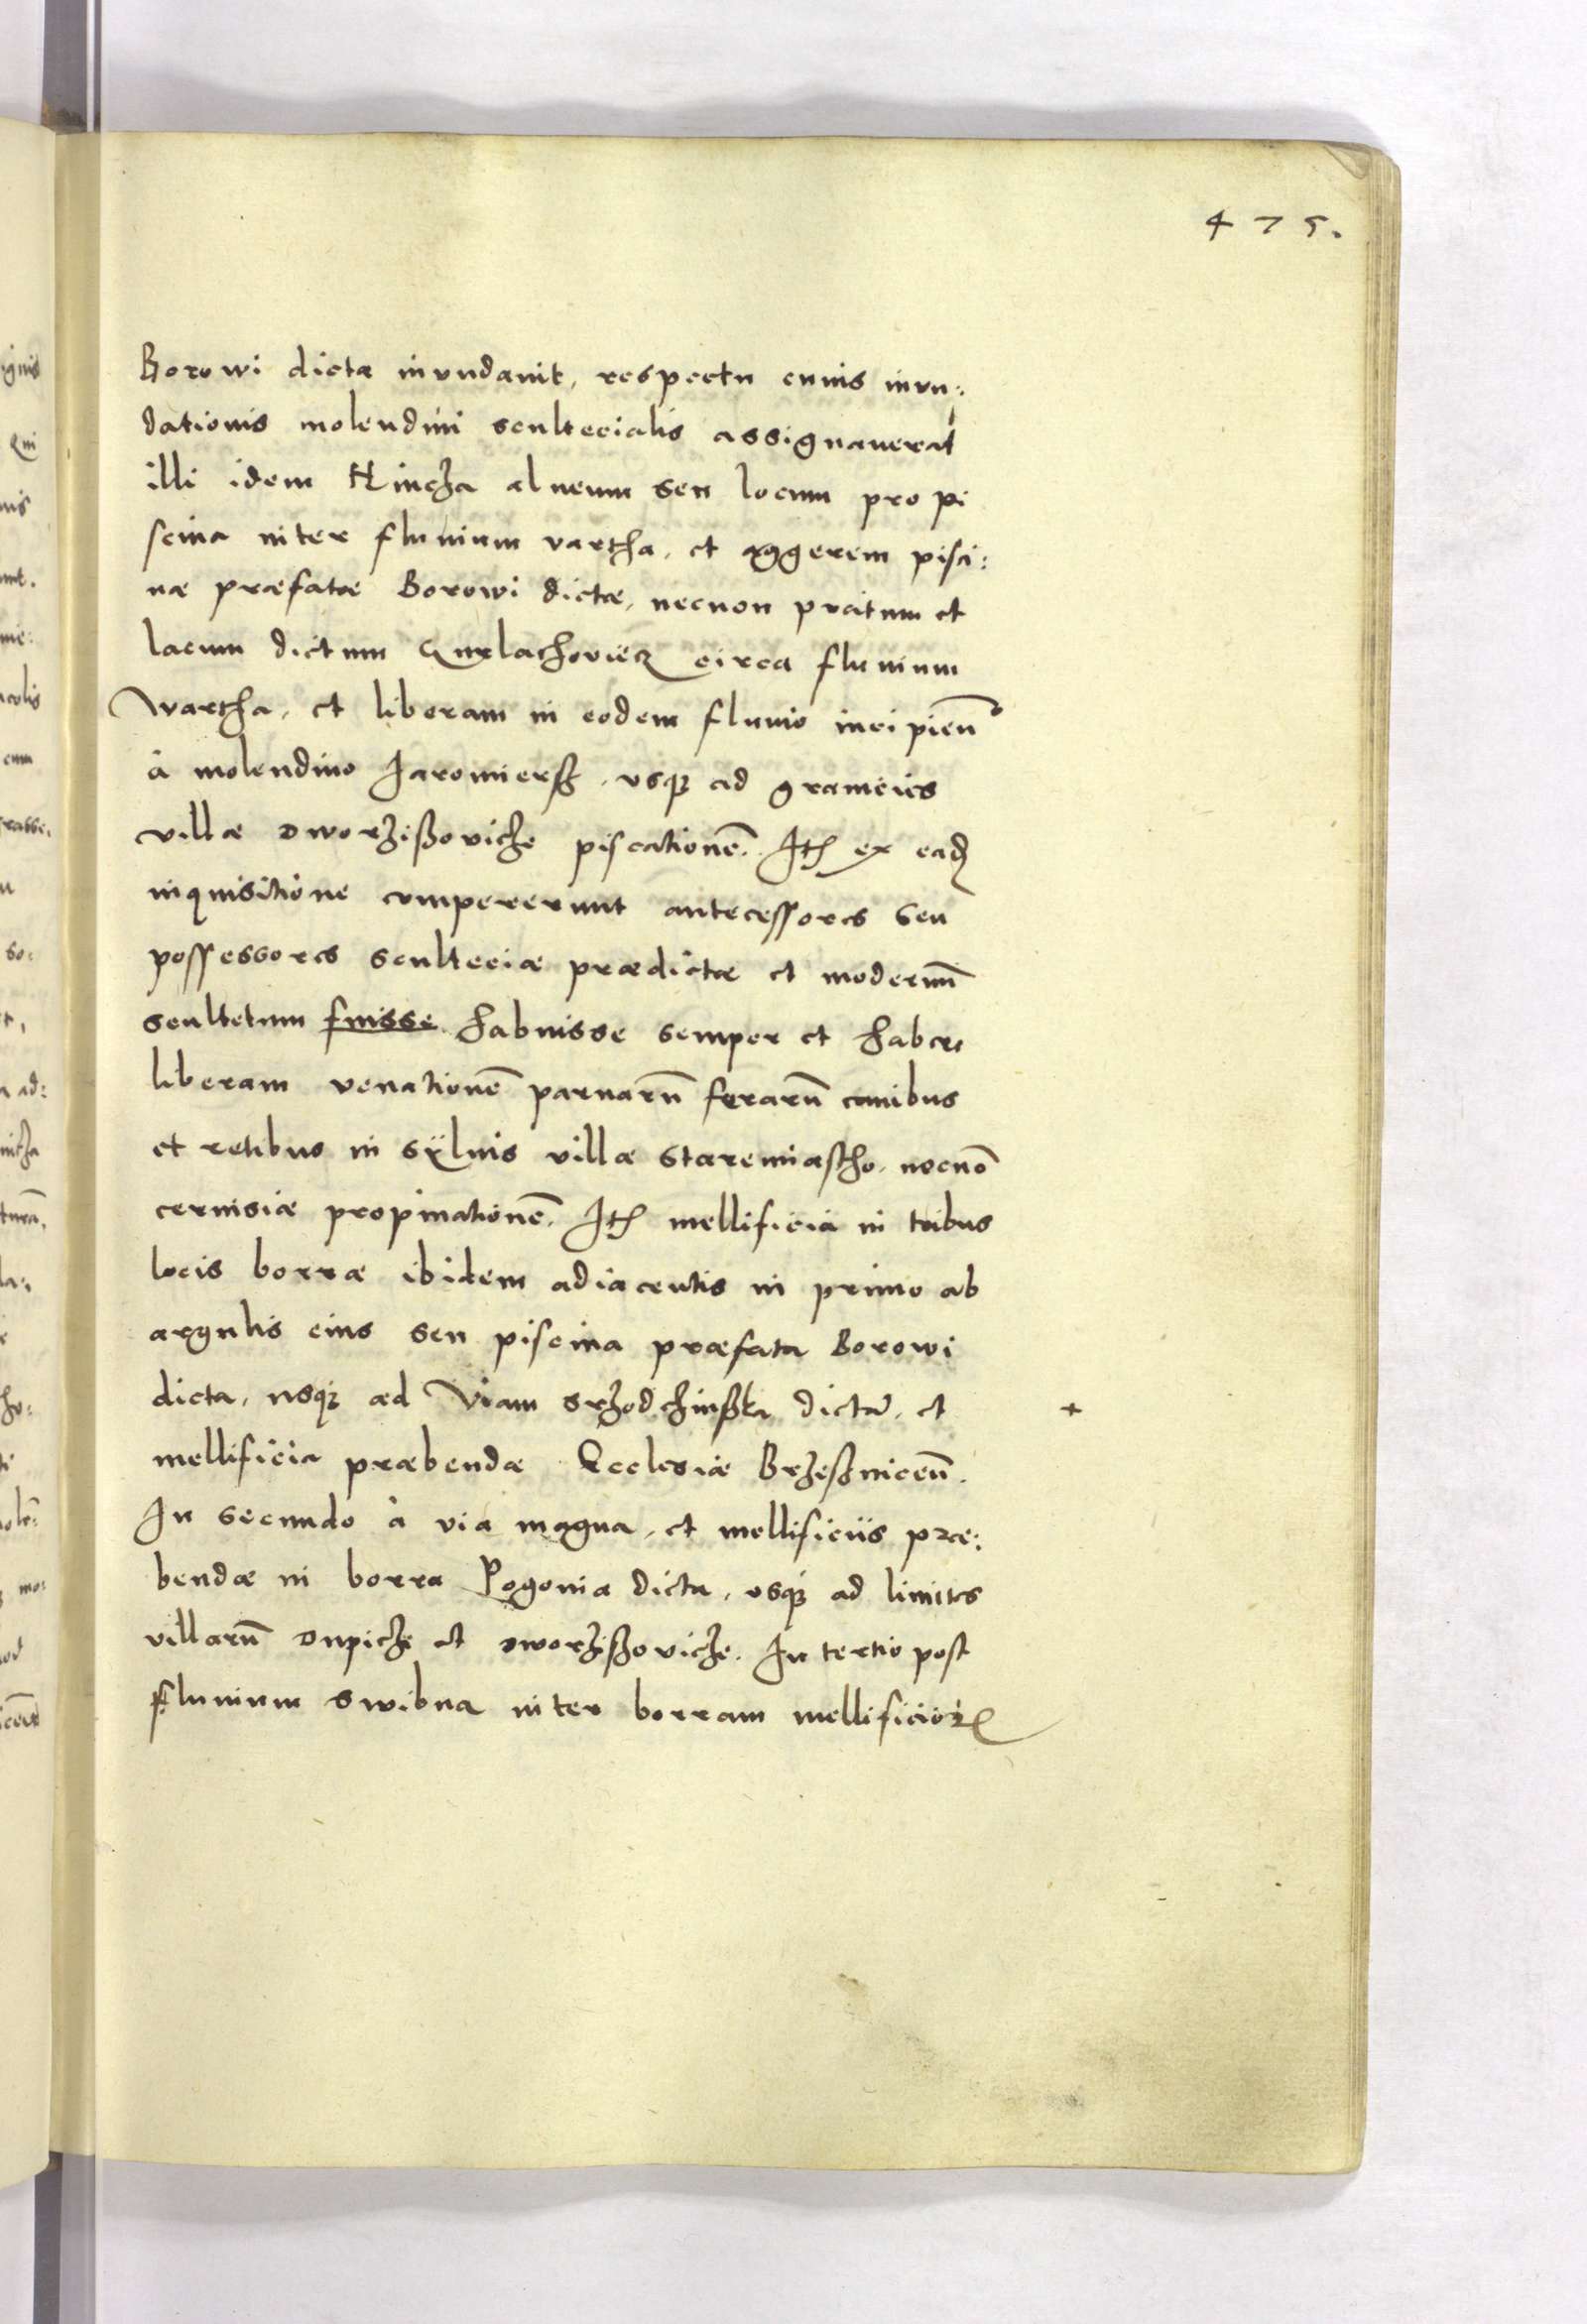 475.
Borowi dicta inundauit, respectu cuius inun:
dationis molendini scultecialis assignauerat
illi idem Hincza alueum seu locum pro pi
scina inter fluuium vartha, et aggerem pisci:
næ præfatæ Borowi dictæ, necnon pratum et
lacum dictum circa fluuium
Wartha, et liberam in eodem fluuio incipien̄
à molendino Jaromiersß, vsqꝫ ad granicies
villæ Dworzißoviche piscationē. Itꝫ ex eadꝫ
inquisitione compererunt antecessores seu
possessores sculteciæ prædictæ et modernū
scultetum fuisse habuisse semper et habere
liberam venationē paruarū ferarū canibus
et retibus in sÿluis villæ Staremiastho, necnō
ceruisiæ propinationē. Itꝫ mellificia in tribus
locis borræ ibidem adiacentis in primo ab
argulis eius seu piscina præfata Borowi
dicta, usqꝫ ad Viam Srzodchinßka dictā, et +
mellificia præbendæ Ecclesiæ Brzeßniceñ.
In secundo à via magna, et mellificiis præ:
bendæ in borra Pogonia dicta, vsqꝫ ad limites
villarū Dupiche et Dworzißoviche. In tertio post
fluuium Swibna inter borram mellificioꝝ